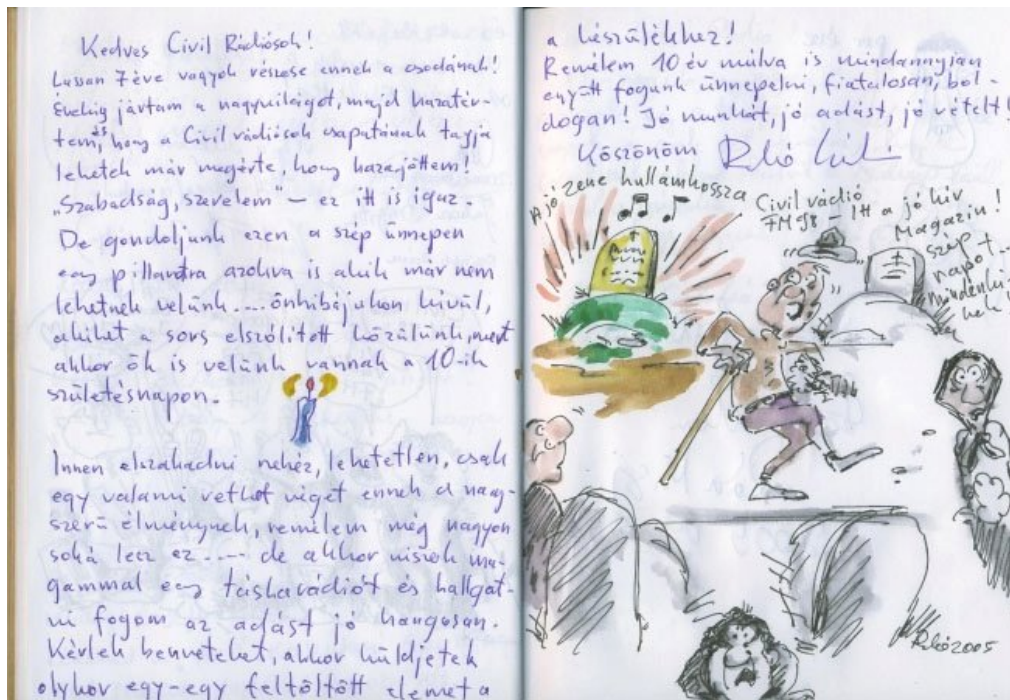 Kedves Civil Rádiósok!
Lassan 7 éve vagyok részese ennek a csodának!
Évekig jártam a nagyvilágot, majd hazatér-
tem, és hogy a Civil rádiósok csapatának tagja
lehetek már megérte, hogy hazajöttem!
„Szabadság, szerelem" – ez itt is igaz.
De gondoljunk ezen a szép ünnepen
egy pillantra azokra is akik már nem
lehetnek velünk.... önhibájukon kívül,
akiket a sors elszólított közülünk, mert
akkor ők is velünk vannak a 10-ik
születésnapon.
Innen elszakadni nehéz, lehetetlen, csak
egy valami vethet véget ennek a nagy-
szerű élménynek, remélem még nagyon
soká lesz ez ---- de akkor viszek ma-
gammal egy táskarádiót és hallgat-
ni fogom az adást jó hangosan.
Kérlek benneteket, akkor küldjetek
olykor egy-egy feltöltött elemet a
a készülékhez!
Remélem 10 év múlva is mindannyian
együtt fogunk ünnepelni, fiatalosan, bol-
dogan! Jó munkát, jó adást, jó vételt!
Köszönöm
A jó zene hullámhossza
Civil rádió
FM98 – Itt a jó hír
Magazin!
szép
napot...
mindenki-
nek!
2005